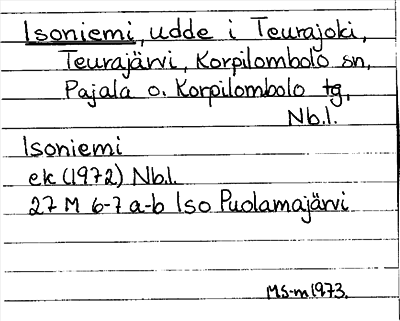 Isoniemi, udde i Teurajoki,
Teurajärvi, Korpilombolo sn,
Pajala o. Korpilombolo tg,
Nb.l.
Isoniemi
ek (1972) Nb.l.
27 M 6-7 a-b Iso Puolamajärvi
MS-m 1973.